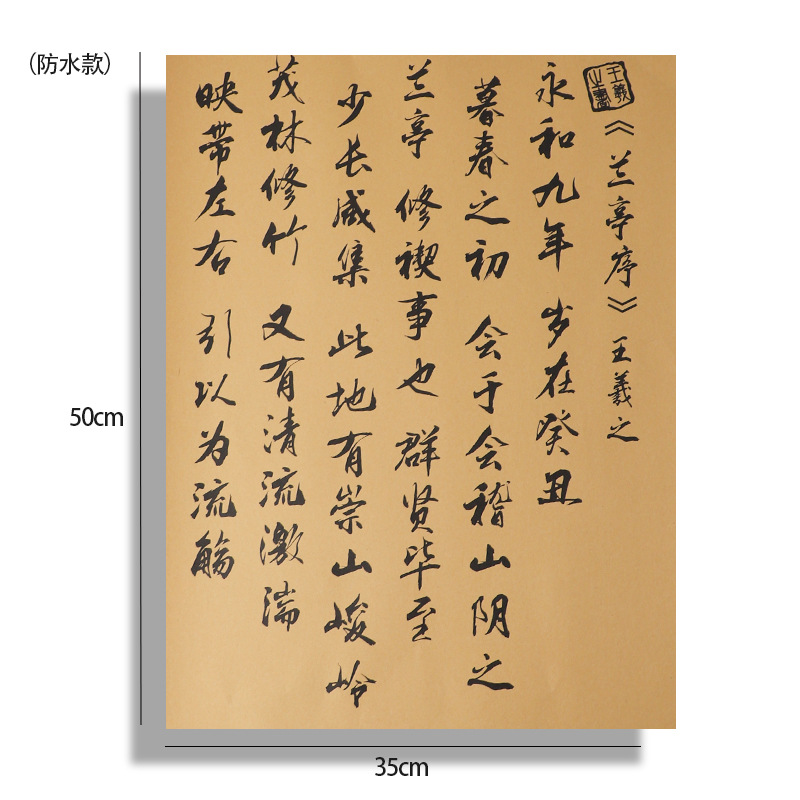 （防水款）
《兰亭序》 王羲之
永和九年 岁在癸丑
暮春之初 会于会稽山阴之
兰亭 修禊事也 群贤毕至
少长咸集 此地有崇山峻岭
茂林修竹 又有清流激湍
映带左右 引以为流觞
50cm
35cm